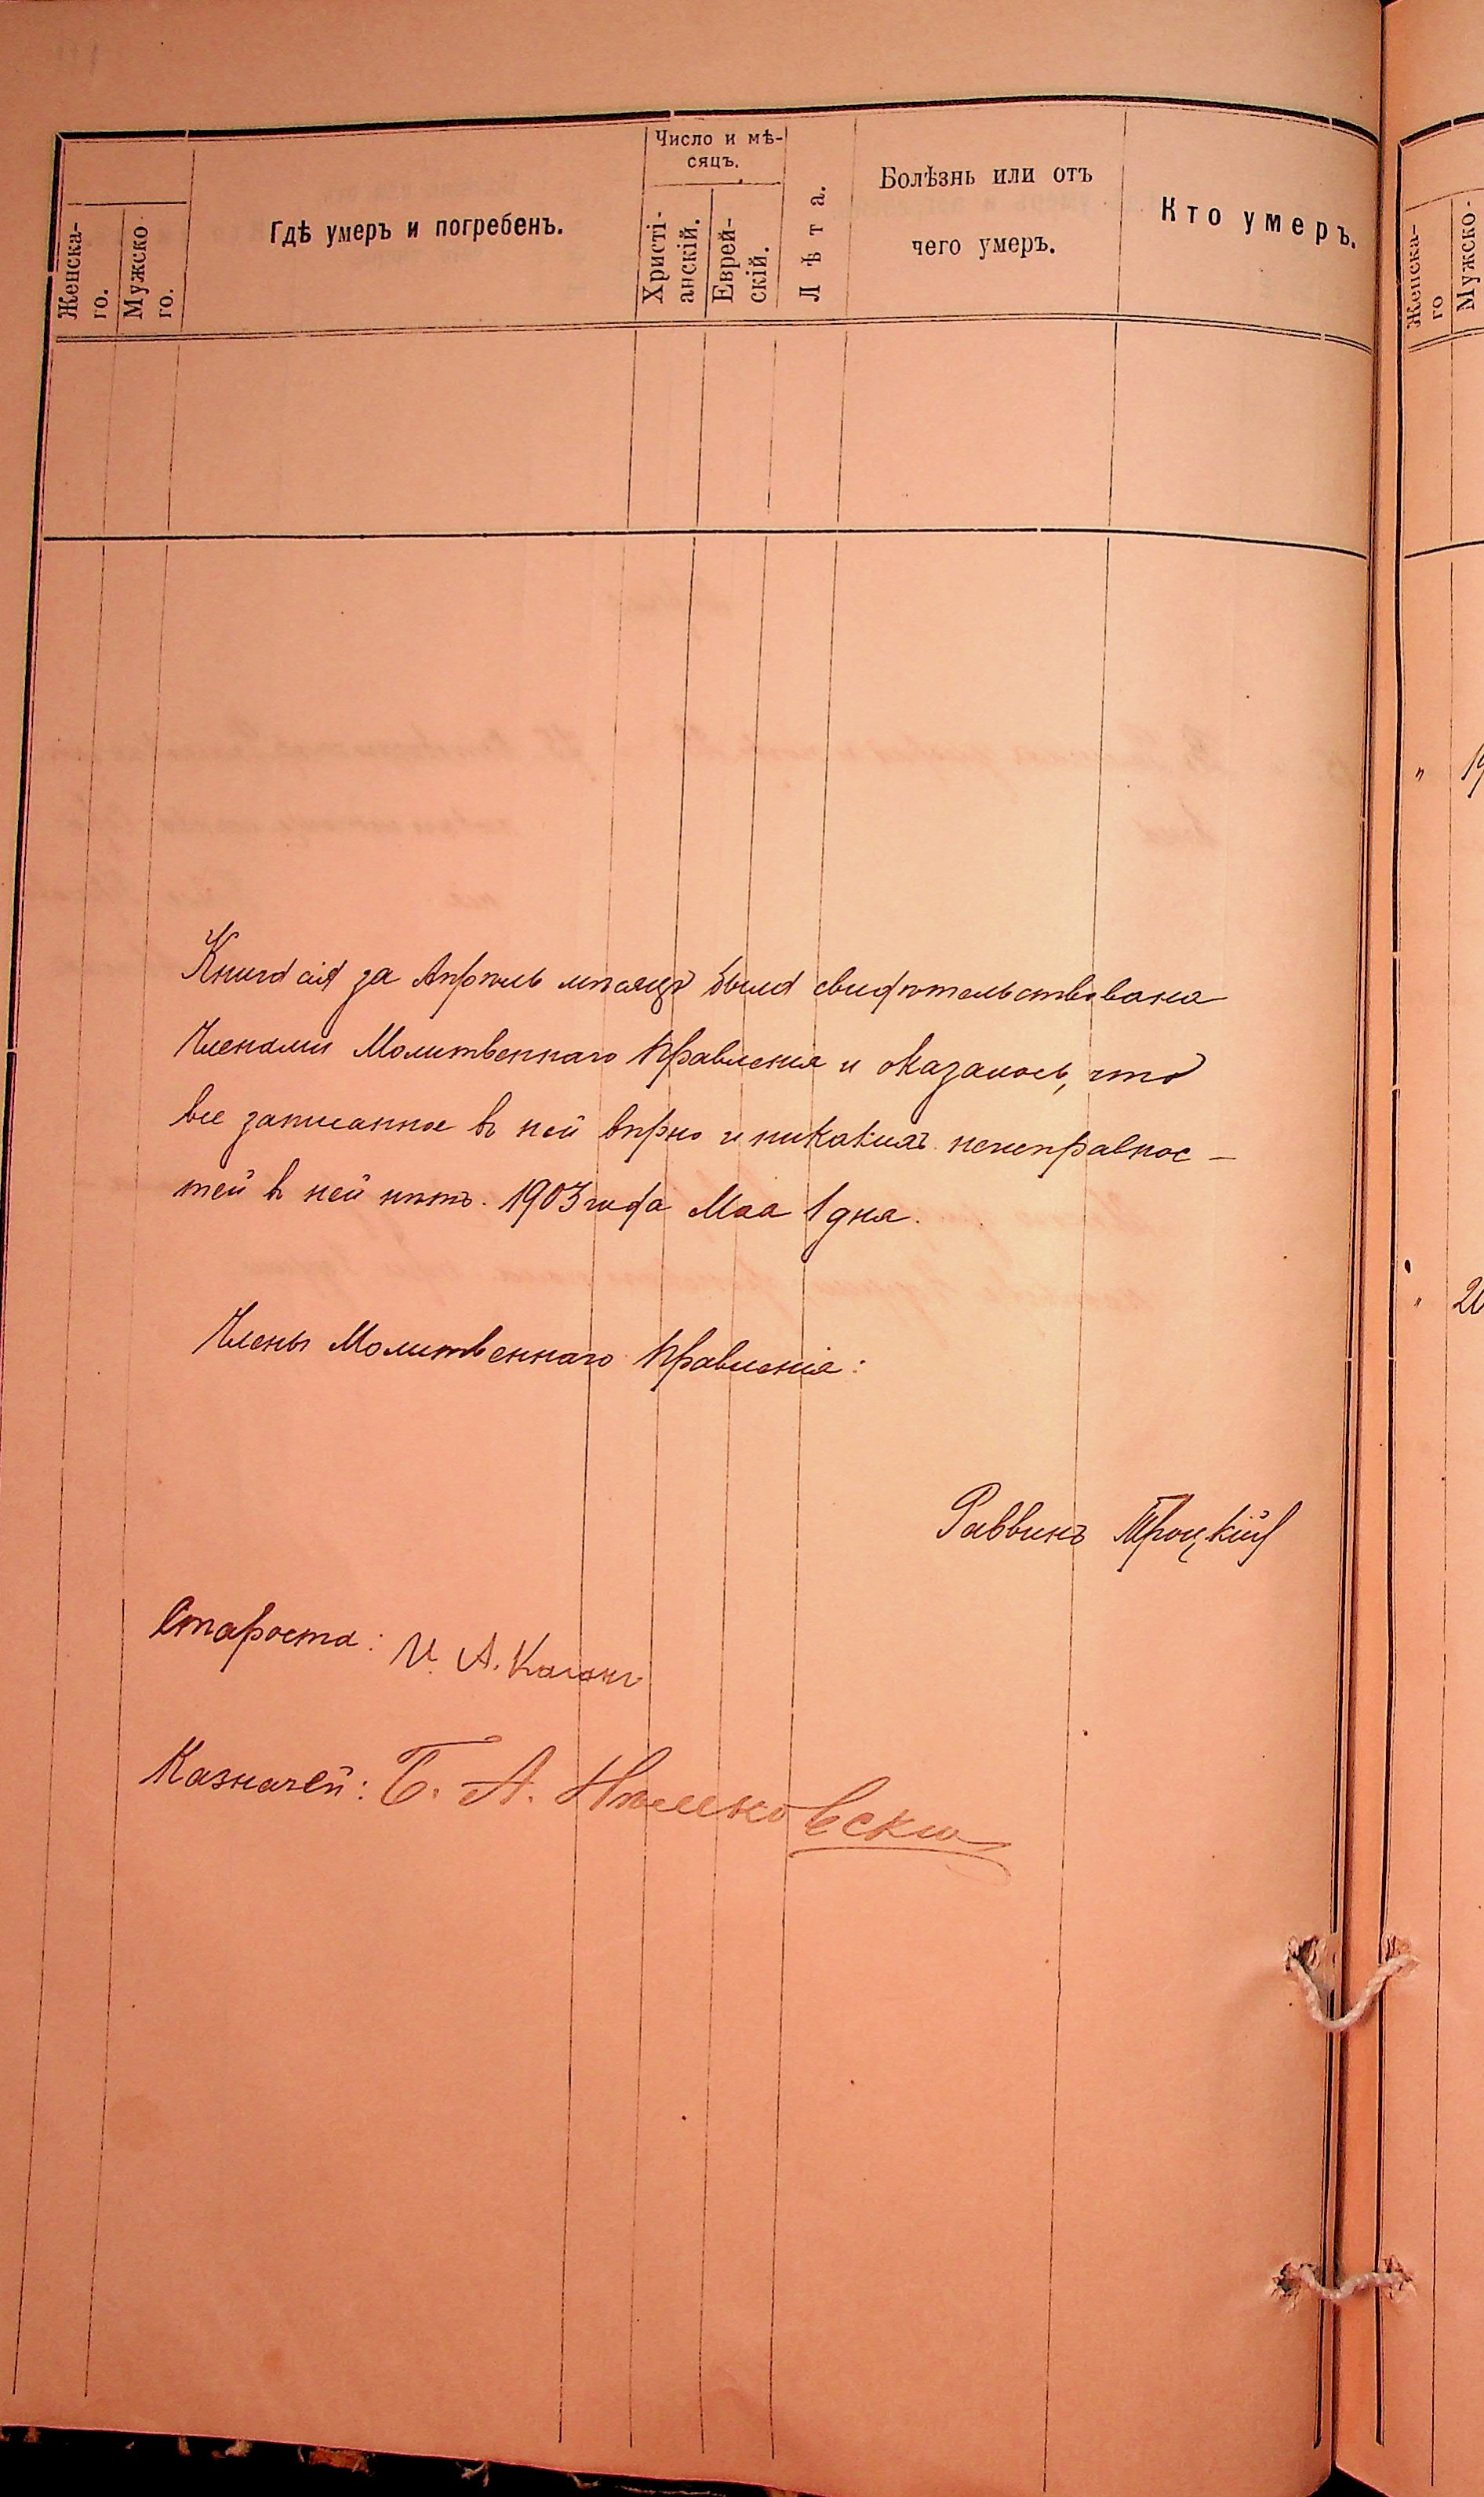 Женска-
го.
Мужско-
го.
Гдѣ умеръ и погребенъ.
Число и мѣ-
сяцъ.
Христі-
анскій.
Еврей-
скій.
Лѣта.
Болѣзнь или отъ
чего умеръ.
Кто умеръ.
Книга сія за Апрѣль мѣсяцъ была свидѣтельствована
Членами Молитвеннаго Правленія и оказалось, что
все записанное въ ней вѣрно и никакихъ неисправнос-
тей въ ней нѣтъ. 1903 года Мая 1 дня.
Члены Молитвеннаго Правленія:
Раввинъ Троцкій
Староста: И. А. Каганъ
Казначей: Б. А.
Женска-
го
Мужско-
" 19
" 20